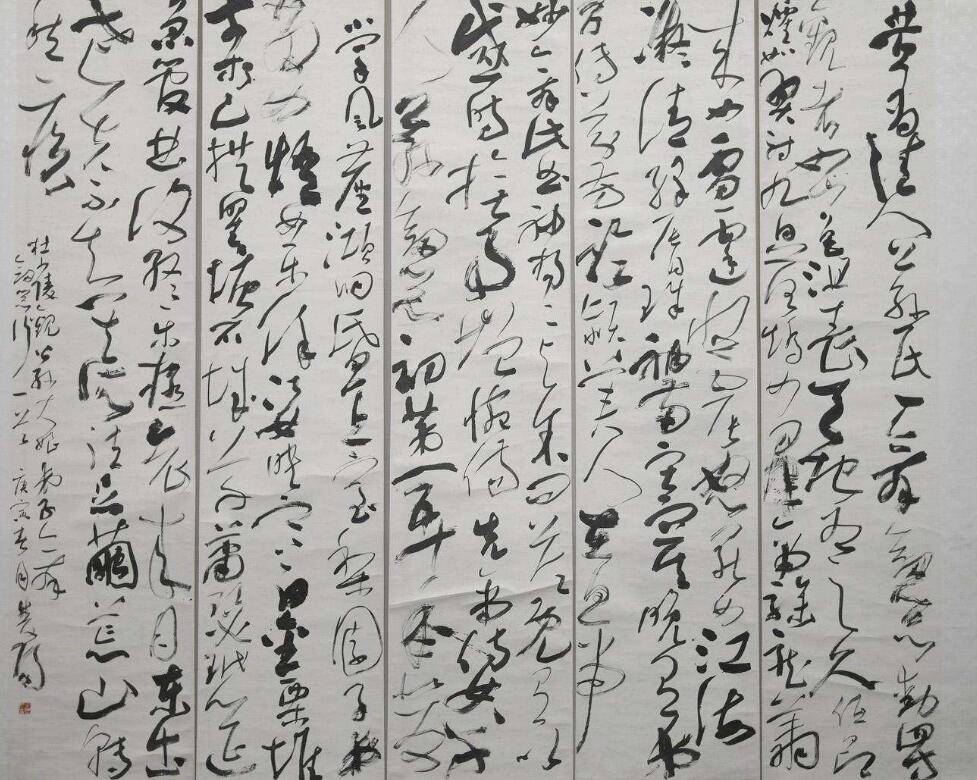 昔有佳人公孫氏一舞劍器動四
方觀者如山色沮喪天地為之久低昂
㸌如羿射九日落矯如群帝驂龍翔
來如雷霆收震怒罷如江海
凝清光絳唇珠袖兩寂寞晚有弟
子傳芬芳臨潁美人在白帝
妙舞此曲神揚揚與余問答既有以
感時撫事增惋傷先帝侍女八千
人公孫劍器初第一五十年間似反
掌風塵澒洞昏王室梨園子弟
散如煙女樂餘姿映寒日金粟堆
南木已拱瞿塘石城草蕭瑟玳筵
急管曲復終樂極哀來月東出
老夫不知其所往足繭荒山轉
愁疾
杜陵觀公孫大娘弟子舞
劍器行一首 庚寅春月